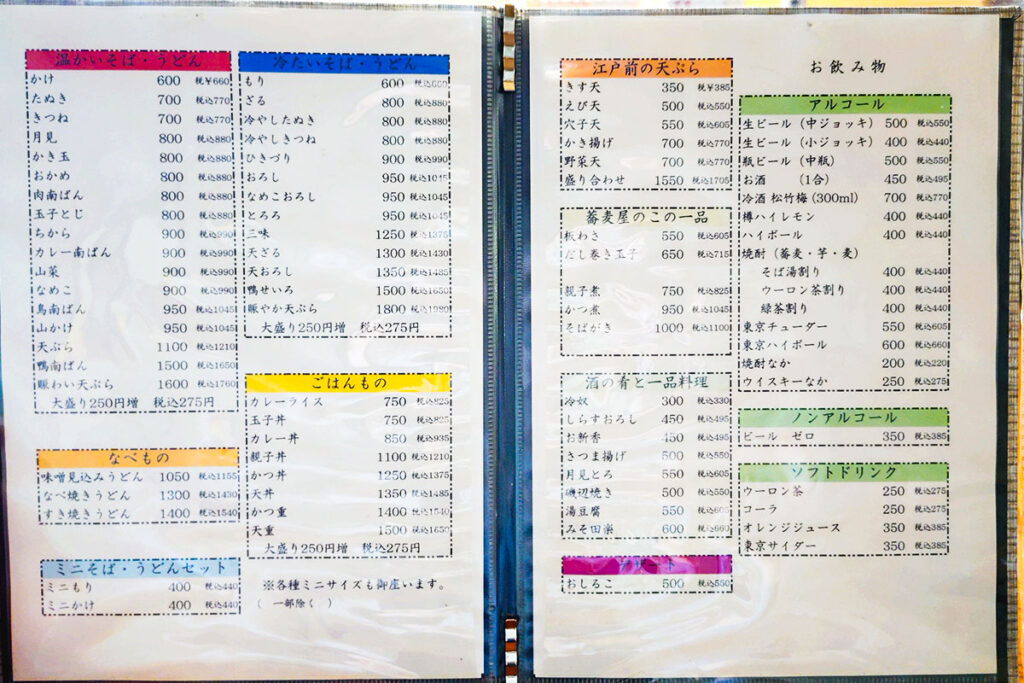 温かいそば・うどん
かけ 600 税¥660
たぬき 700 税込770
きつね 700 税込770
月見 800 税込880
かき玉 800 税込880
おかめ 800 税込880
肉南ばん 800 税込880
玉子とじ 800 税込880
ちから 900 税込990
カレー南ばん 900 税込990
山菜 900 税込990
なめこ 900 税込990
鳥南ばん 950 税込1045
山かけ 950 税込1045
天ぷら 1100 税込1210
鴨南ばん 1500 税込1650
賑わい天ぷら 1600 税込1760
大盛り250円増 税込275円
なべもの
味噌見込みうどん 1050 税込1155
なべ焼きうどん 1300 税込1430
すき焼きうどん 1400 税込1540
ミニそば・うどんセット
ミニもり 400 税込440
ミニかけ 400 税込440
冷たいそば・うどん
もり 600 税込660
ざる 800 税込880
冷やしたぬき 800 税込880
冷やしきつね 800 税込880
ひきづり 900 税込990
おろし 950 税込1045
なめこおろし 950 税込1045
とろろ 950 税込1045
三味 1250 税込1375
天ざる 1300 税込1430
天おろし 1350 税込1485
鴨せいろ 1500 税込1650
賑やか天ぷら 1800 税込1980
大盛り250円増 税込275円
ごはんもの
カレーライス 750 税込825
玉子丼 750 税込825
カレー丼 850 税込935
親子丼 1100 税込1210
かつ丼 1250 税込1375
天丼 1350 税込1485
かつ重 1400 税込1540
天重 1500 税込1650
大盛り250円増 税込275円
※各種ミニサイズも御座います。
( 一部除く )
江戸前の天ぷら
きす天 350 税¥385
えび天 500 税込550
穴子天 550 税込605
かき揚げ 700 税込770
野菜天 700 税込770
盛り合わせ 1550 税込1705
蕎麦屋のこの一品
板わさ 550 税込605
だし巻き玉子 650 税込715
親子煮 750 税込825
かつ煮 950 税込1045
そばがき 1000 税込1100
酒の肴と一品料理
冷奴 300 税込330
しらすおろし 450 税込495
お新香 450 税込495
さつま揚げ 500 税込550
月見とろ 550 税込605
磯辺焼き 500 税込550
湯豆腐 550 税込605
みそ田楽 600 税込660
デザート
おしるこ 500 税込550
お飲み物
アルコール
生ビール (中ジョッキ) 500 税込550
生ビール (小ジョッキ) 400 税込440
瓶ビール (中瓶) 500 税込550
お酒 (1合) 450 税込495
冷酒 松竹梅 (300ml) 700 税込770
樽ハイレモン 400 税込440
ハイボール 400 税込440
焼酎 (蕎麦・芋・麦)
そば湯割り 400 税込440
ウーロン茶割り 400 税込440
緑茶割り 400 税込440
東京チューダー 550 税込605
東京ハイボール 600 税込660
焼酎なか 200 税込220
ウイスキーなか 250 税込275
ノンアルコール
ビール ゼロ 350 税込385
ソフトドリンク
ウーロン茶 250 税込275
コーラ 250 税込275
オレンジジュース 350 税込385
東京サイダー 350 税込385